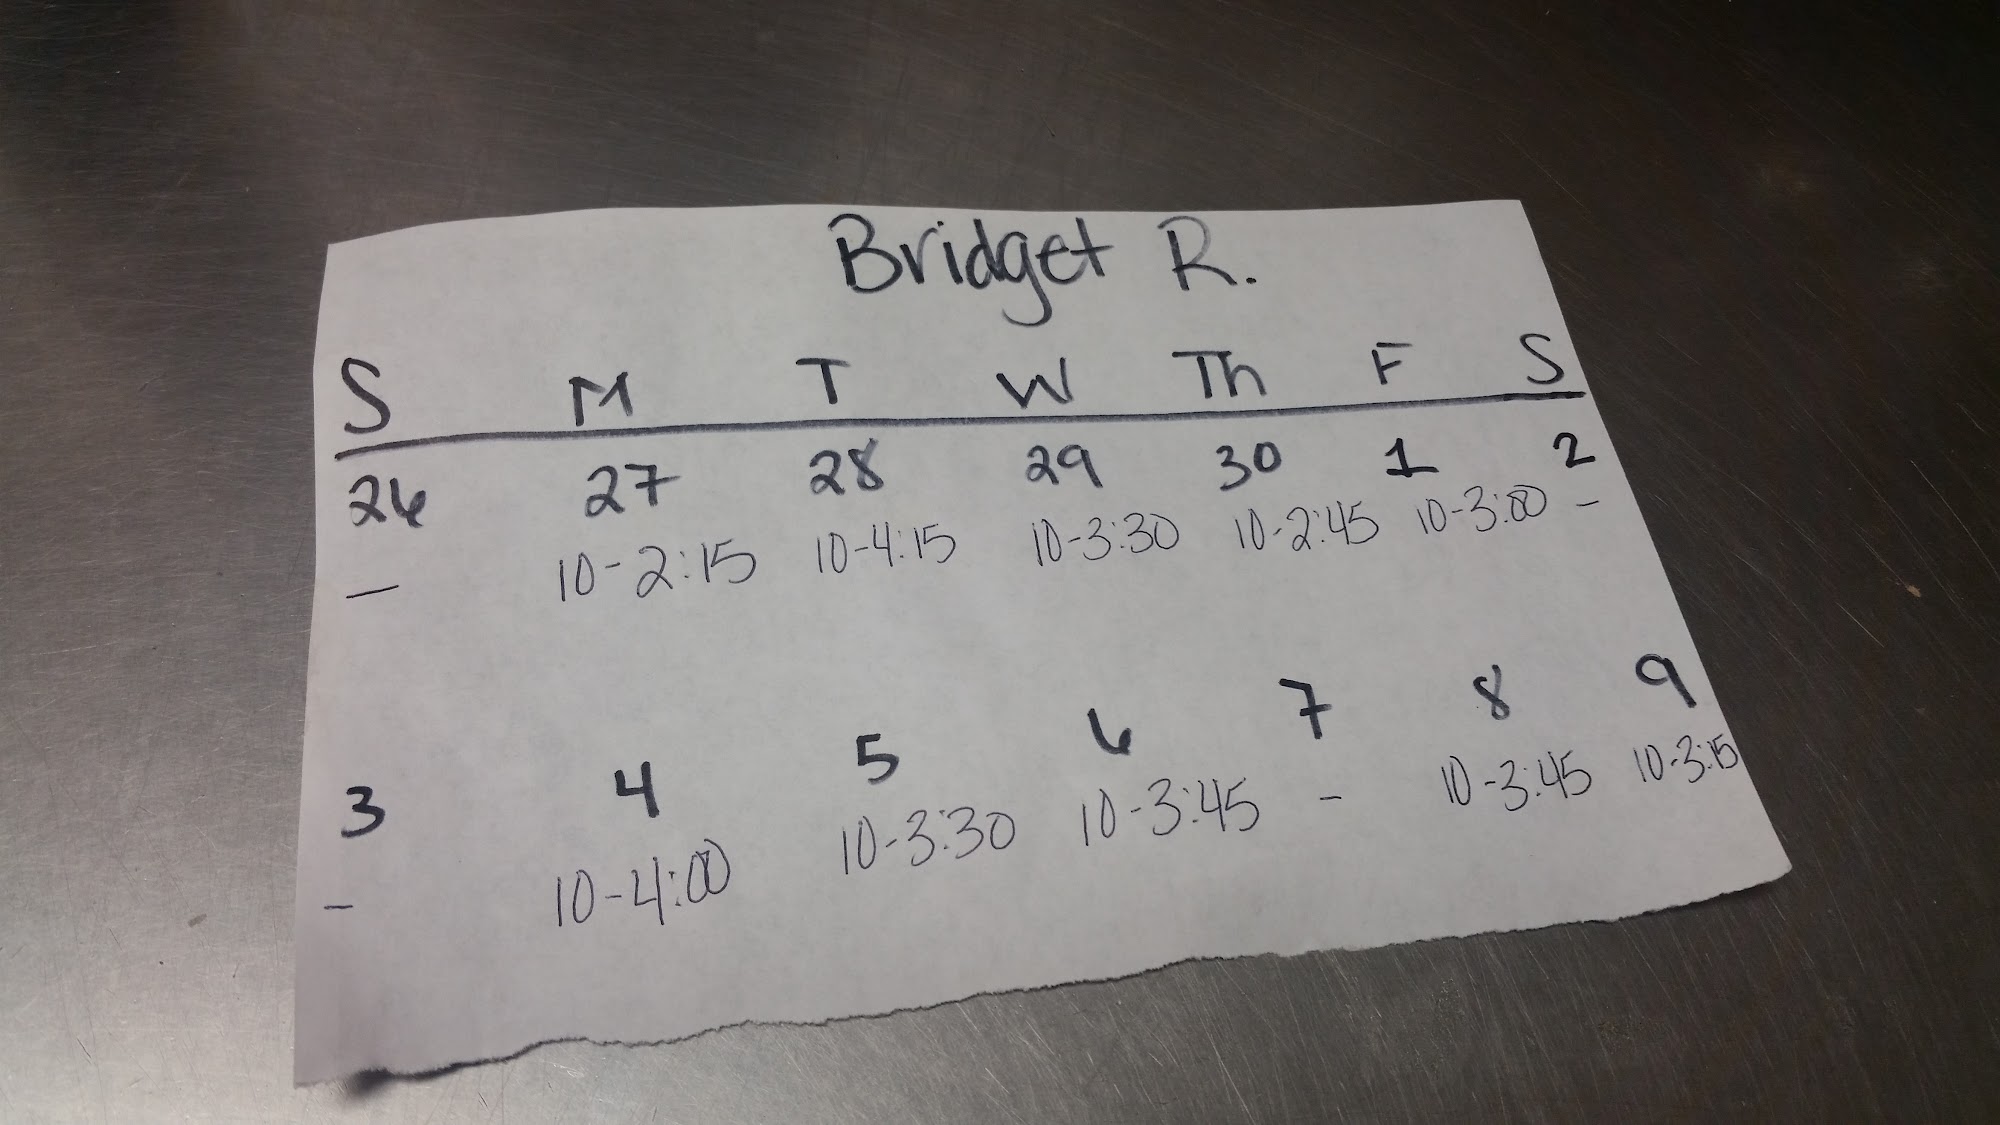 Bridget R.
S M T W Th F S
26 27 28 29 30 1 2
- 10-2:15 10-4:15 10-3:30 10-2:45 10-3:00 -
3 4 5 6 7 8 9
- 10-4:00 10-3:30 10-3:45 - 10-3:45 10-3:15